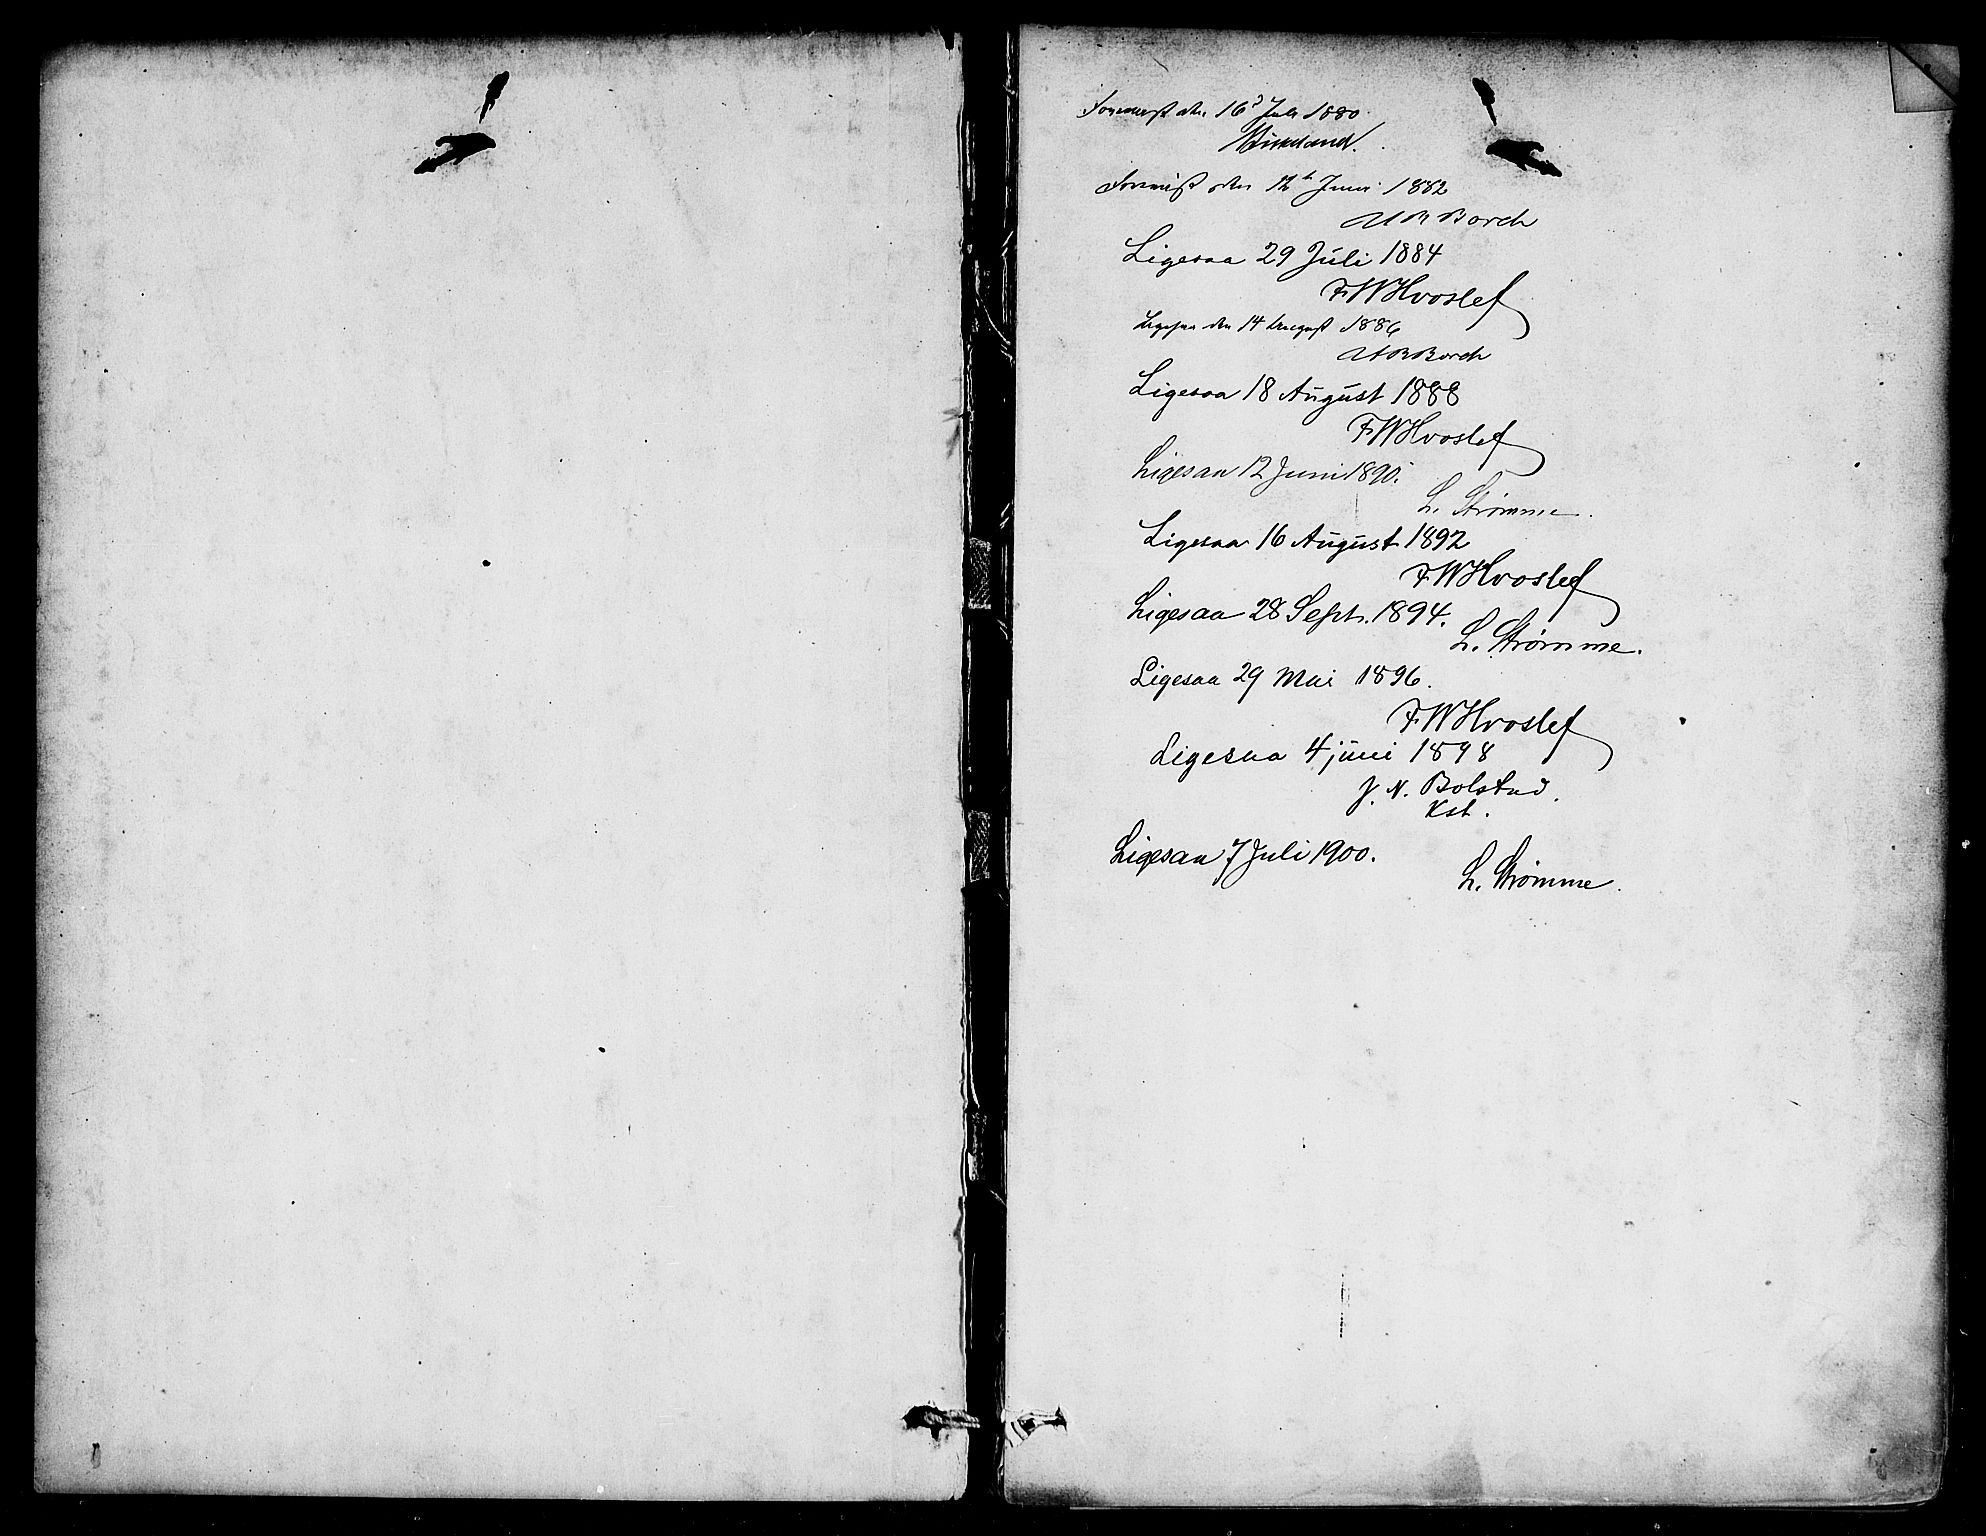 Forevist den 16 Juli 1880.
Forevist den 12 Juni 1882
Borch
Ligesaa 29 Juli 1884
FWHvoslef
Ligesaa den 14 August 1886
Borch
Ligesaa 18 August 1888
FWHvoslef
Ligesaa 12 Juni 1890.
L. Strømme.
Ligesaa 16 August 1892
FWHvoslef
Ligesaa 28 Sept. 1894.
L. Strømme.
Ligesaa 29 Mai 1896.
FWHvoslef
Ligesaa 4 juni 1898
J. N. Bolstad.
Kst.
Ligesaa 7 Juli 1900.
L. Strømme.